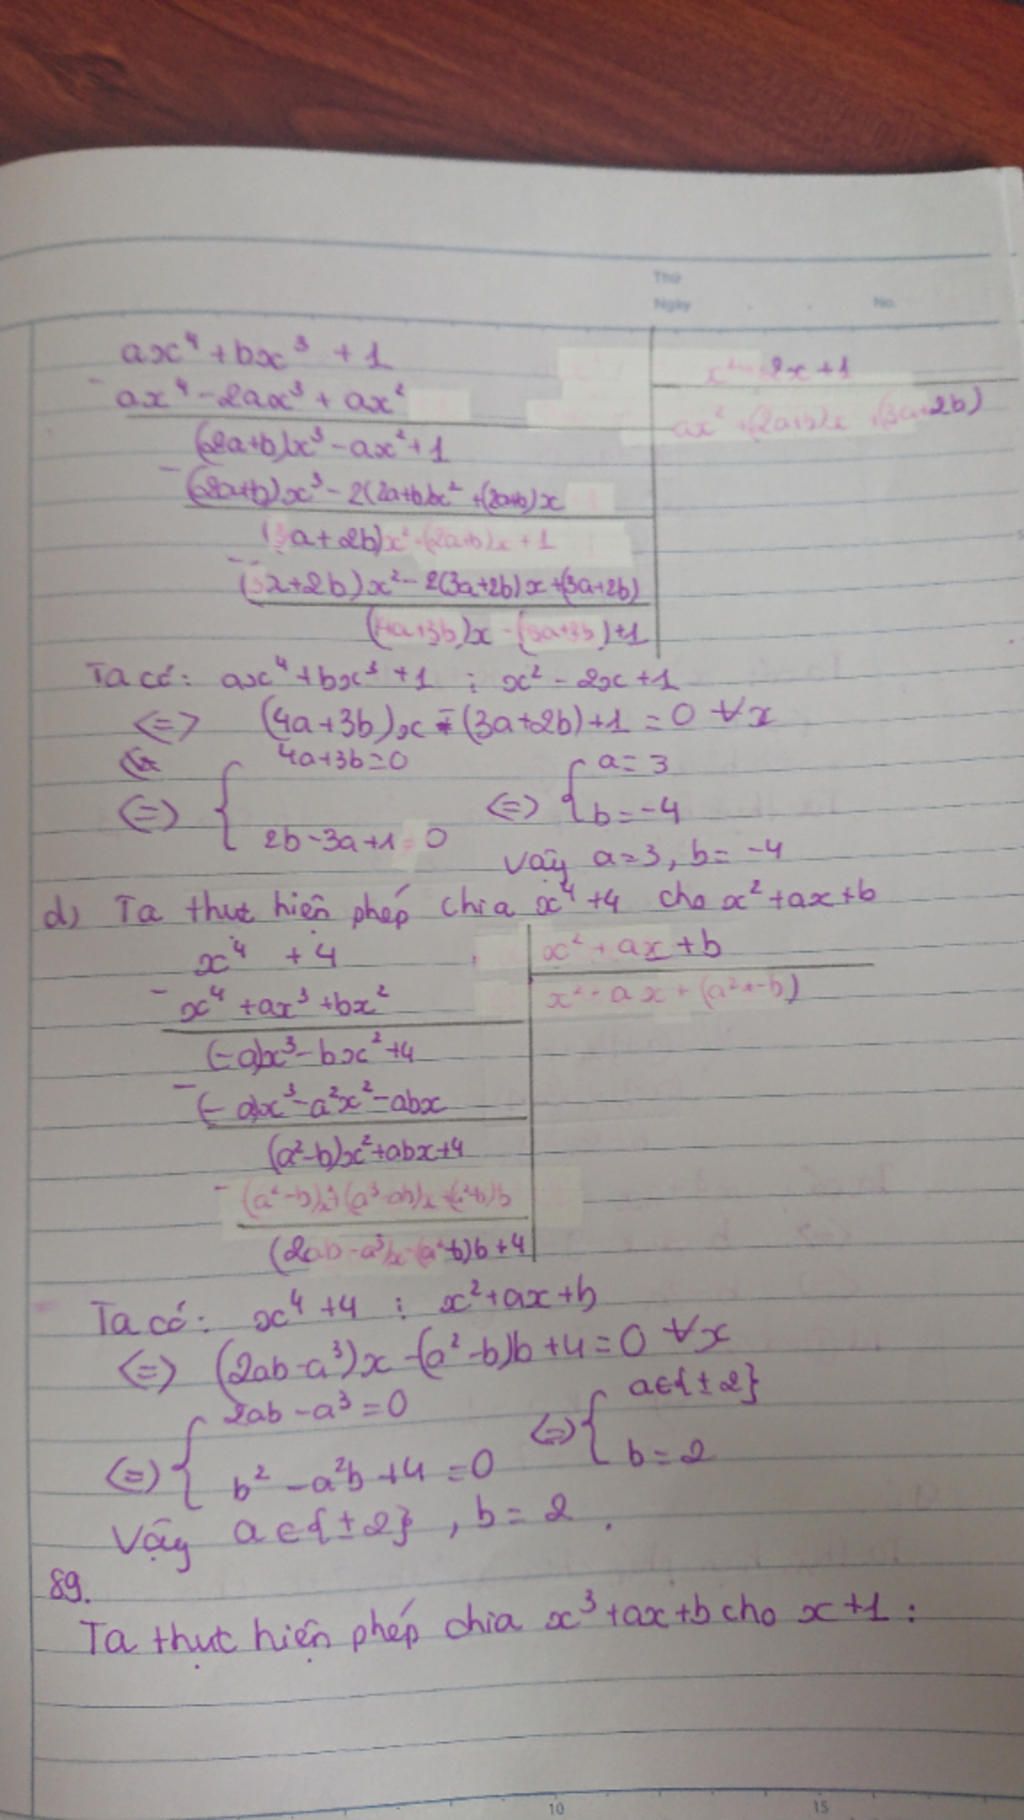 Thứ
Ngày No.
ax⁴ + bx³ + 1
x² - 2x + 1
- ax⁴ - 2ax³ + ax²
ax² + (2a+b)x + (3a+2b)
(2a+b)x³ - ax² + 1
- (2a+b)x³ - 2(2a+b)x² + (2a+b)x
(3a+2b)x² - (2a+b)x + 1
- (3a+2b)x² - 2(3a+2b)x + (3a+2b)
(4a+3b)x - (3a+2b) + 1
Ta có: ax⁴ + bx³ + 1 ⋮ x² - 2x + 1
<=> (4a+3b)x - (3a+2b) + 1 = 0 ∀x
4a+3b=0
a=3
<=> { <=> {
b=-4
2b-3a+1=0
Vậy a=3, b=-4
d) Ta thưc hiện phép chia x⁴ + 4 cho x² + ax + b
x⁴ + 4
x² + ax + b
- x⁴ + ax³ + bx²
x² - ax + (a² - b)
(-a)x³ - bx² + 4
- (-a)x³ - a²x² - abx
(a²-b)x² + abx + 4
- (a²-b)x² + (a³-ab)x + (a²-b)b
(2ab - a³)x - (a²-b)b + 4
Ta có: x⁴ + 4 ⋮ x² + ax + b
<=> (2ab - a³)x - (a² - b)b + 4 = 0 ∀x
2ab - a³ = 0
a∈{±2}
<=> { <=> {
b = 2
b² - a²b + 4 = 0
Vậy a∈{±2}, b = 2.
89.
Ta thực hiện phép chia x³ + ax + b cho x + 1 :
10 15